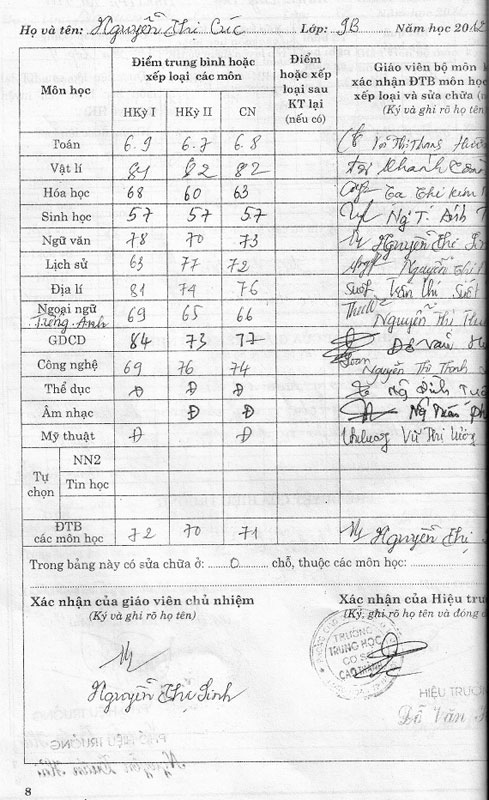 Họ và tên: Nguyễn Thị Cúc Lớp: 9B Năm học 20
Môn học
Điểm trung bình hoặc
xếp loại các môn
HKỳ I HKỳ II CN
Điểm
hoặc xếp
loại sau
KT lại
(nếu có)
Giáo viên bộ môn
xác nhận ĐTB môn học
xếp loại và sửa chữa
(Ký và ghi rõ họ tên)
Toán 6.9 6.7 6.8
Vật lí 81 82 82 Khánh
Hóa học 68 60 63 Tạ Thị Kim
Sinh học 57 57 57 Ng T. Ánh
Ngữ văn 78 70 73 Nguyễn Thị
Lịch sử 63 77 72 Nguyễn Thị
Địa lí 81 74 76 Suốt Trần Thị Suốt
Ngoại ngữ 69 65 66 Nguyễn Thị
Tiếng Anh
GDCD 84 73 77 Đỗ Văn
Công nghệ 69 76 74 Nguyễn Thị Thanh
Thể dục Đ Đ Đ Ng Đình
Âm nhạc Đ Đ Ng Trần
Mỹ thuật Đ Đ Vũ Thị Lương
Tự
chọn
NN2
Tin học
ĐTB
các môn học 72 70 71 Nguyễn Thị
Trong bảng này có sửa chữa ở: 0 chỗ, thuộc các môn học:
Xác nhận của giáo viên chủ nhiệm
(Ký và ghi rõ họ tên)
Nguyễn Thị Sinh
Xác nhận của Hiệu
(Ký, ghi rõ họ tên và đóng
TRƯỜNG
TRUNG HỌC
CƠ SỞ
CAO THÀNH
HIỆU
Đỗ Văn
8